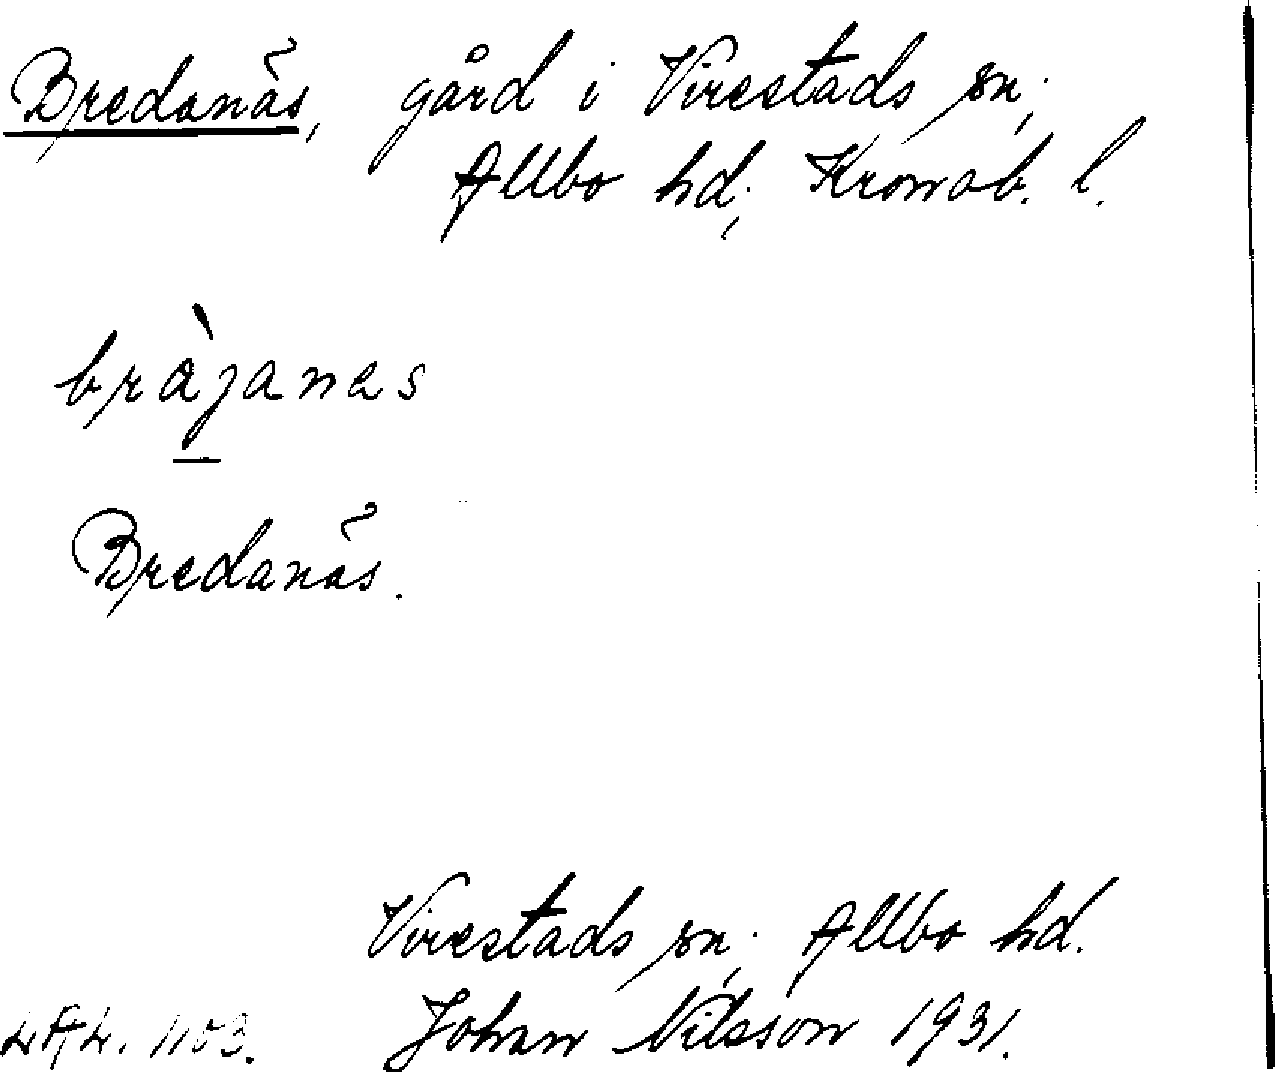 Bredanäs, gård i Virestads sn;
Allbo hd; Kronob. l.
bràjanes
Bredanäs.
Virestads sn; Allbo hd.
Johan Nilsson 1931.